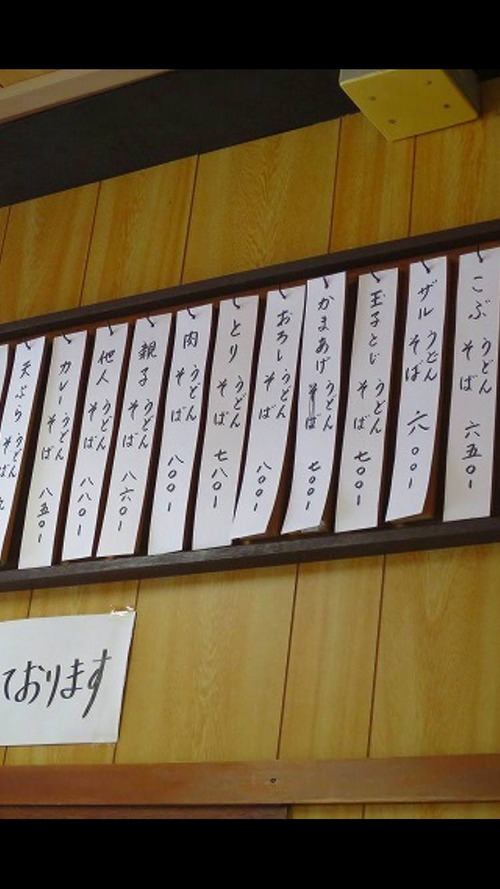 こぶ うどん そば 六五〇ー
ザル うどん そば 六〇〇ー
玉子とじ うどん そば 七〇〇ー
かまあげ うどん そば 七〇〇ー
おろし うどん そば 八〇〇ー
とり うどん そば 七八〇ー
肉 うどん そば 八〇〇ー
親子 うどん そば 八六〇ー
他人 うどん そば 八八〇ー
カレー うどん そば 八五〇ー
天ぷら うどん そば 九
ております